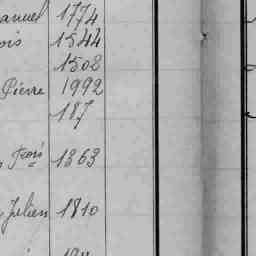 anuel 1774
ois 1544
1508
Pierre 1992
187
Fçois 1363
Julien 1810